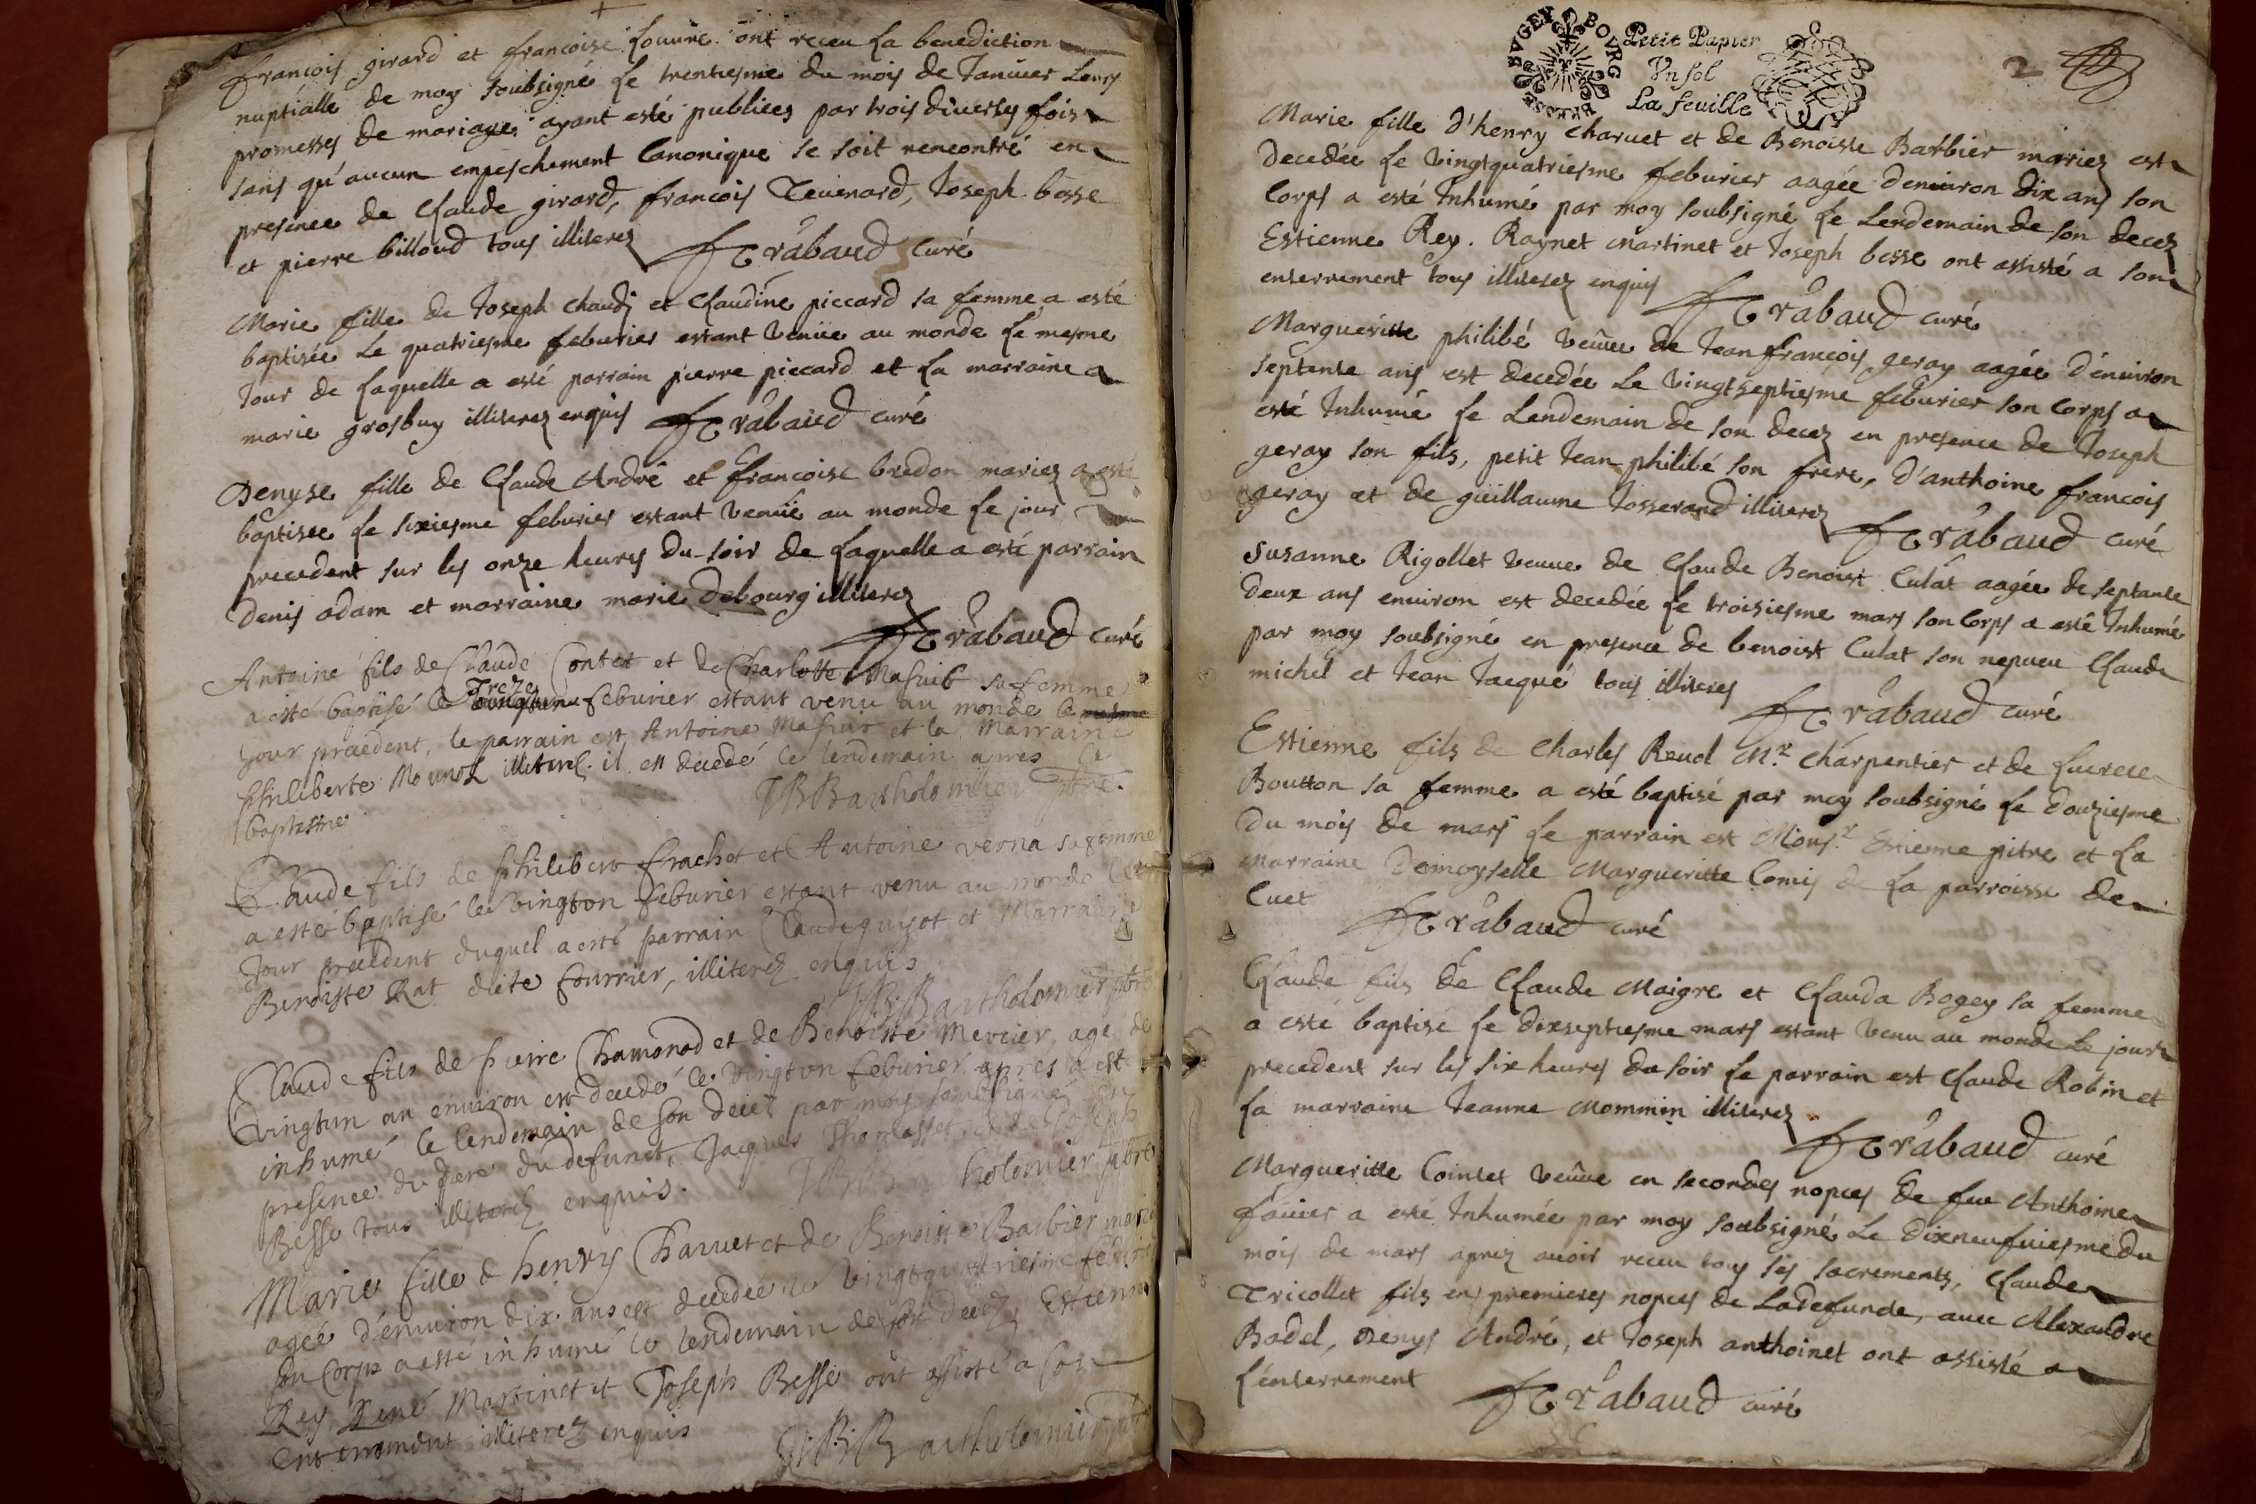 françois girard et francoise Louure ont receu la benediction
nuptialle de moy soubsigné le trentiesme du mois de Januier Leurs
promesses de mariage ayant esté publiees par trois diuerses fois
sans qu'aucun empeschement Canonique se soit rencontré en
presence de Claude girard, françois Teuenard, Joseph besse
et pierre billoud tous illiterez Trabaud curé
Marie fille de Joseph chaudy et Claudine piccard sa femme a esté
baptisée Le quatriesme feburier estant venüe au monde le mesme
Jour de laquelle a esté parrain pierre piccard et la marraine
marie grosbuy illiterez enquis Trabaud curé
Denyse fille de Claude André et francoise bredon mariez a esté
baptisee le sixiesme feburier estant venüe au monde le jour
precedent sur les onze heures du soir de laquelle a esté parrain
Denis adam et marraine marie debourg illiterez
Trabaud curé
Antoine fils de Claude Contet et de Charlotte Masuit sa femme
a esté baptisé le Treze feburier estant venu au monde le mesme
jour precedent, le parrain est Antoine Masuit et la Marraine
Philiberte illiterez. il est decedé le lendemain apres le
baptesme JBBartholomier pbre.
Claude fils de Philibert frachet et Antoine verna sa femme
a esté baptisé le vingt un feburier estant venu au monde le
jour precedent duquel a esté parrain Claude guyot et Marraine
Benoiste Rat dite fourrier, illiterez enquis
JBBartholomier pbre
Claude fils de pierre Chamonod et de Benoiste Mercier, agé de
vingt un an environ est decedé le vingt un feburier apres a esté
inhumé le lendemain de son decet par moy soubsigné en
presence du pere du defunct, Jacques Thomasset et de Joseph
Besse tous illiterez enquis. JBBartholomier pbre
Marie fille d henry Charuet et de Benoiste Barbier mariez
agée d'enuiron dix ans est decedée le vingt quatriesme feburier
son Corps a esté inhumé le lendemain de son decez, Estienne
Rey René Martinet et Joseph Besse ont assisté a son
enterrement illiterez enquis J.B.Bartholomier pbre
BVGEY BOVRG BRESSE
Petit Papier
Vn sol
La feuille
2
Marie fille d'henry charuet et de Benoiste Barbier mariez est
decedée le vingtquatriesme feburier aagée denuiron dix ans son
Corps a esté Inhumé par moy soubsigné le Lendemain de son decez
Estienne Rey. Raynet Martinet et Joseph besse ont assisté a son
enterrement tous illiterez enquis Trabaud curé
Margueritte philibé veûue de Jean françois geray aagée d'enuiron
septante ans est decedée Le vingtseptiesme feburier son Corps a
esté Inhumé le Lendemain de son decez en presence de Joseph
geray son fils, petit Jean philibé son frere, d'anthoine francois
geray et de guillaume Josserand illiterez Trabaud curé
Susanne Rigollet veuue de Claude Benoist Culat aagée de septante
deux ans enuiron est decedée le troisiesme mars son Corps a esté Inhumé
par moy soubsigné en presence de benoist Culat son nepueu Claude
michel et Jean Jacqué tous illiteres Trabaud curé
Estienne fils de Charles Reud Mr. Charpentier et de lucrece
Boutton sa femme a esté baptisé par moy soubsigné le douziesme
du mois de mars le parrain est Monsr. Etienne pitre et la
Marraine Demoyselle Margueritte Comis de la parroisse de
Cuet Trabaud curé
Claude fils de Claude Maigre et Clauda Bogey sa femme
a esté baptise le dixseptiesme mars estant venu au monde Le jour
precedent sur les six heures du soir le parrain est Claude Robin et
la marraine Jeanne Mommin illiterez
Trabaud curé
Margueritte Cointet veûue en secondes nopces de feu Anthoine
fauier a esté Inhumée par moy soubsigné Le dixneufuiesme du
mois de mars aprez auoir receu tous ses sacrements, Claude
Tricollet fils en premieres nopces de Ladefunde, auec Alexandre
Badel, Denys André, et Joseph anthoinet ont assisté a
l'enterrement Trabaud curé